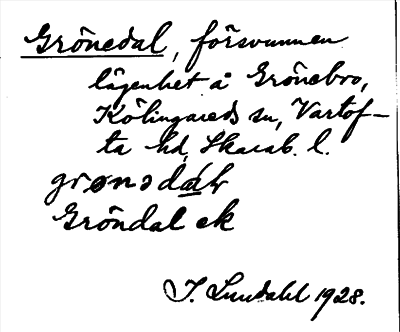 Grönedal, försvunnen
lägenhet å Grönebro,
Kölingareds sn, Vartof-
ta hd, Skarab. l.
grønədáḷ
Gröndal ek
I. Lundahl 1928.